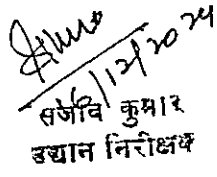 6/12/2024
संजीव कुमार
उद्यान निरीक्षक